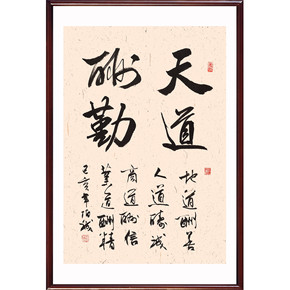 天道
酬勤
地道酬善
人道酬誠
商道酬信
業道酬精
己亥年